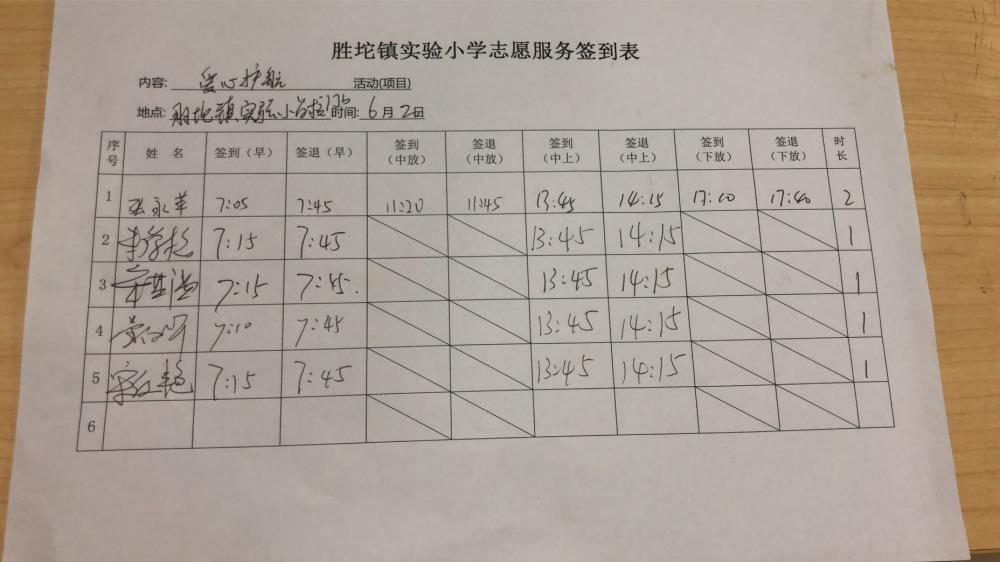 胜坨镇实验小学志愿服务签到表
内容: 爱心护航 活动(项目)
地点: 胜坨镇实验小学 时间: 6月2日
序号 姓名 签到(早) 签退(早) 签到(中放) 签退(中放) 签到(中上) 签退(中上) 签到(下放) 签退(下放) 时长
1 张永革 7:05 7:45 11:20 11:45 13:45 14:15 17:10 17:40 2
2 7:15 7:45 13:45 14:15 1
3 7:15 7:45. 13:45 14:15 1
4 7:10 7:45 13:45 14:15 1
5 宋红艳 7:15 7:45 13:45 14:15 1
6